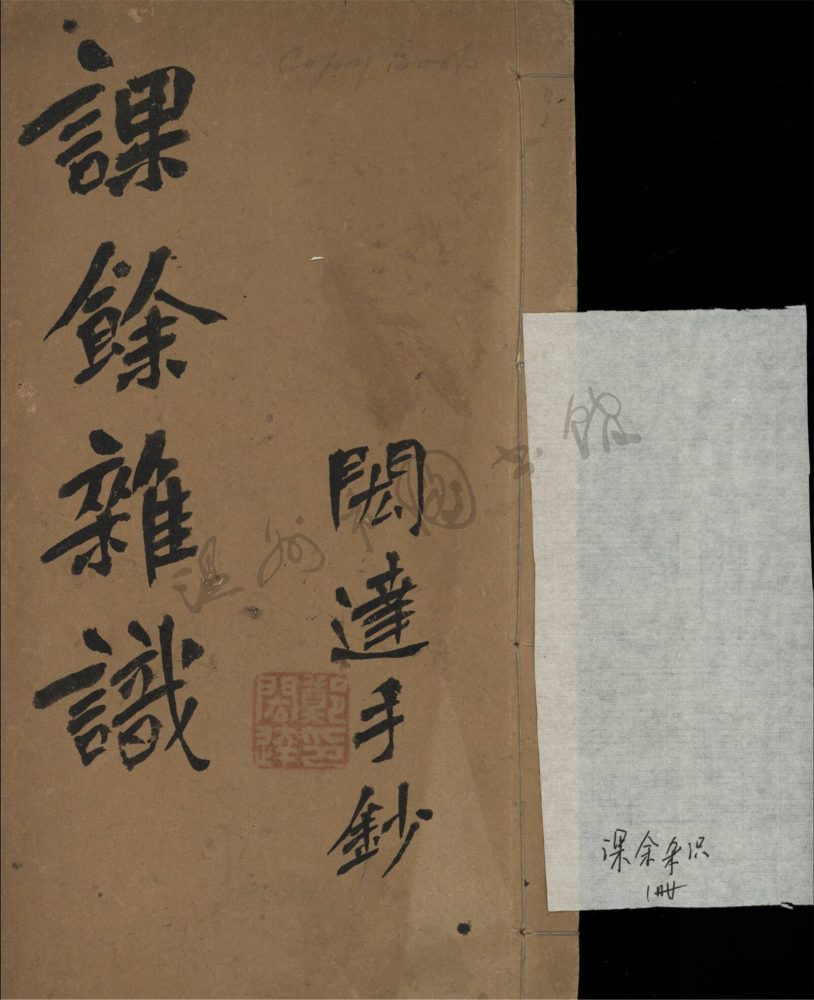 Copy Book
課餘雜識
閎達手鈔
温州图书馆
课余杂识
1册